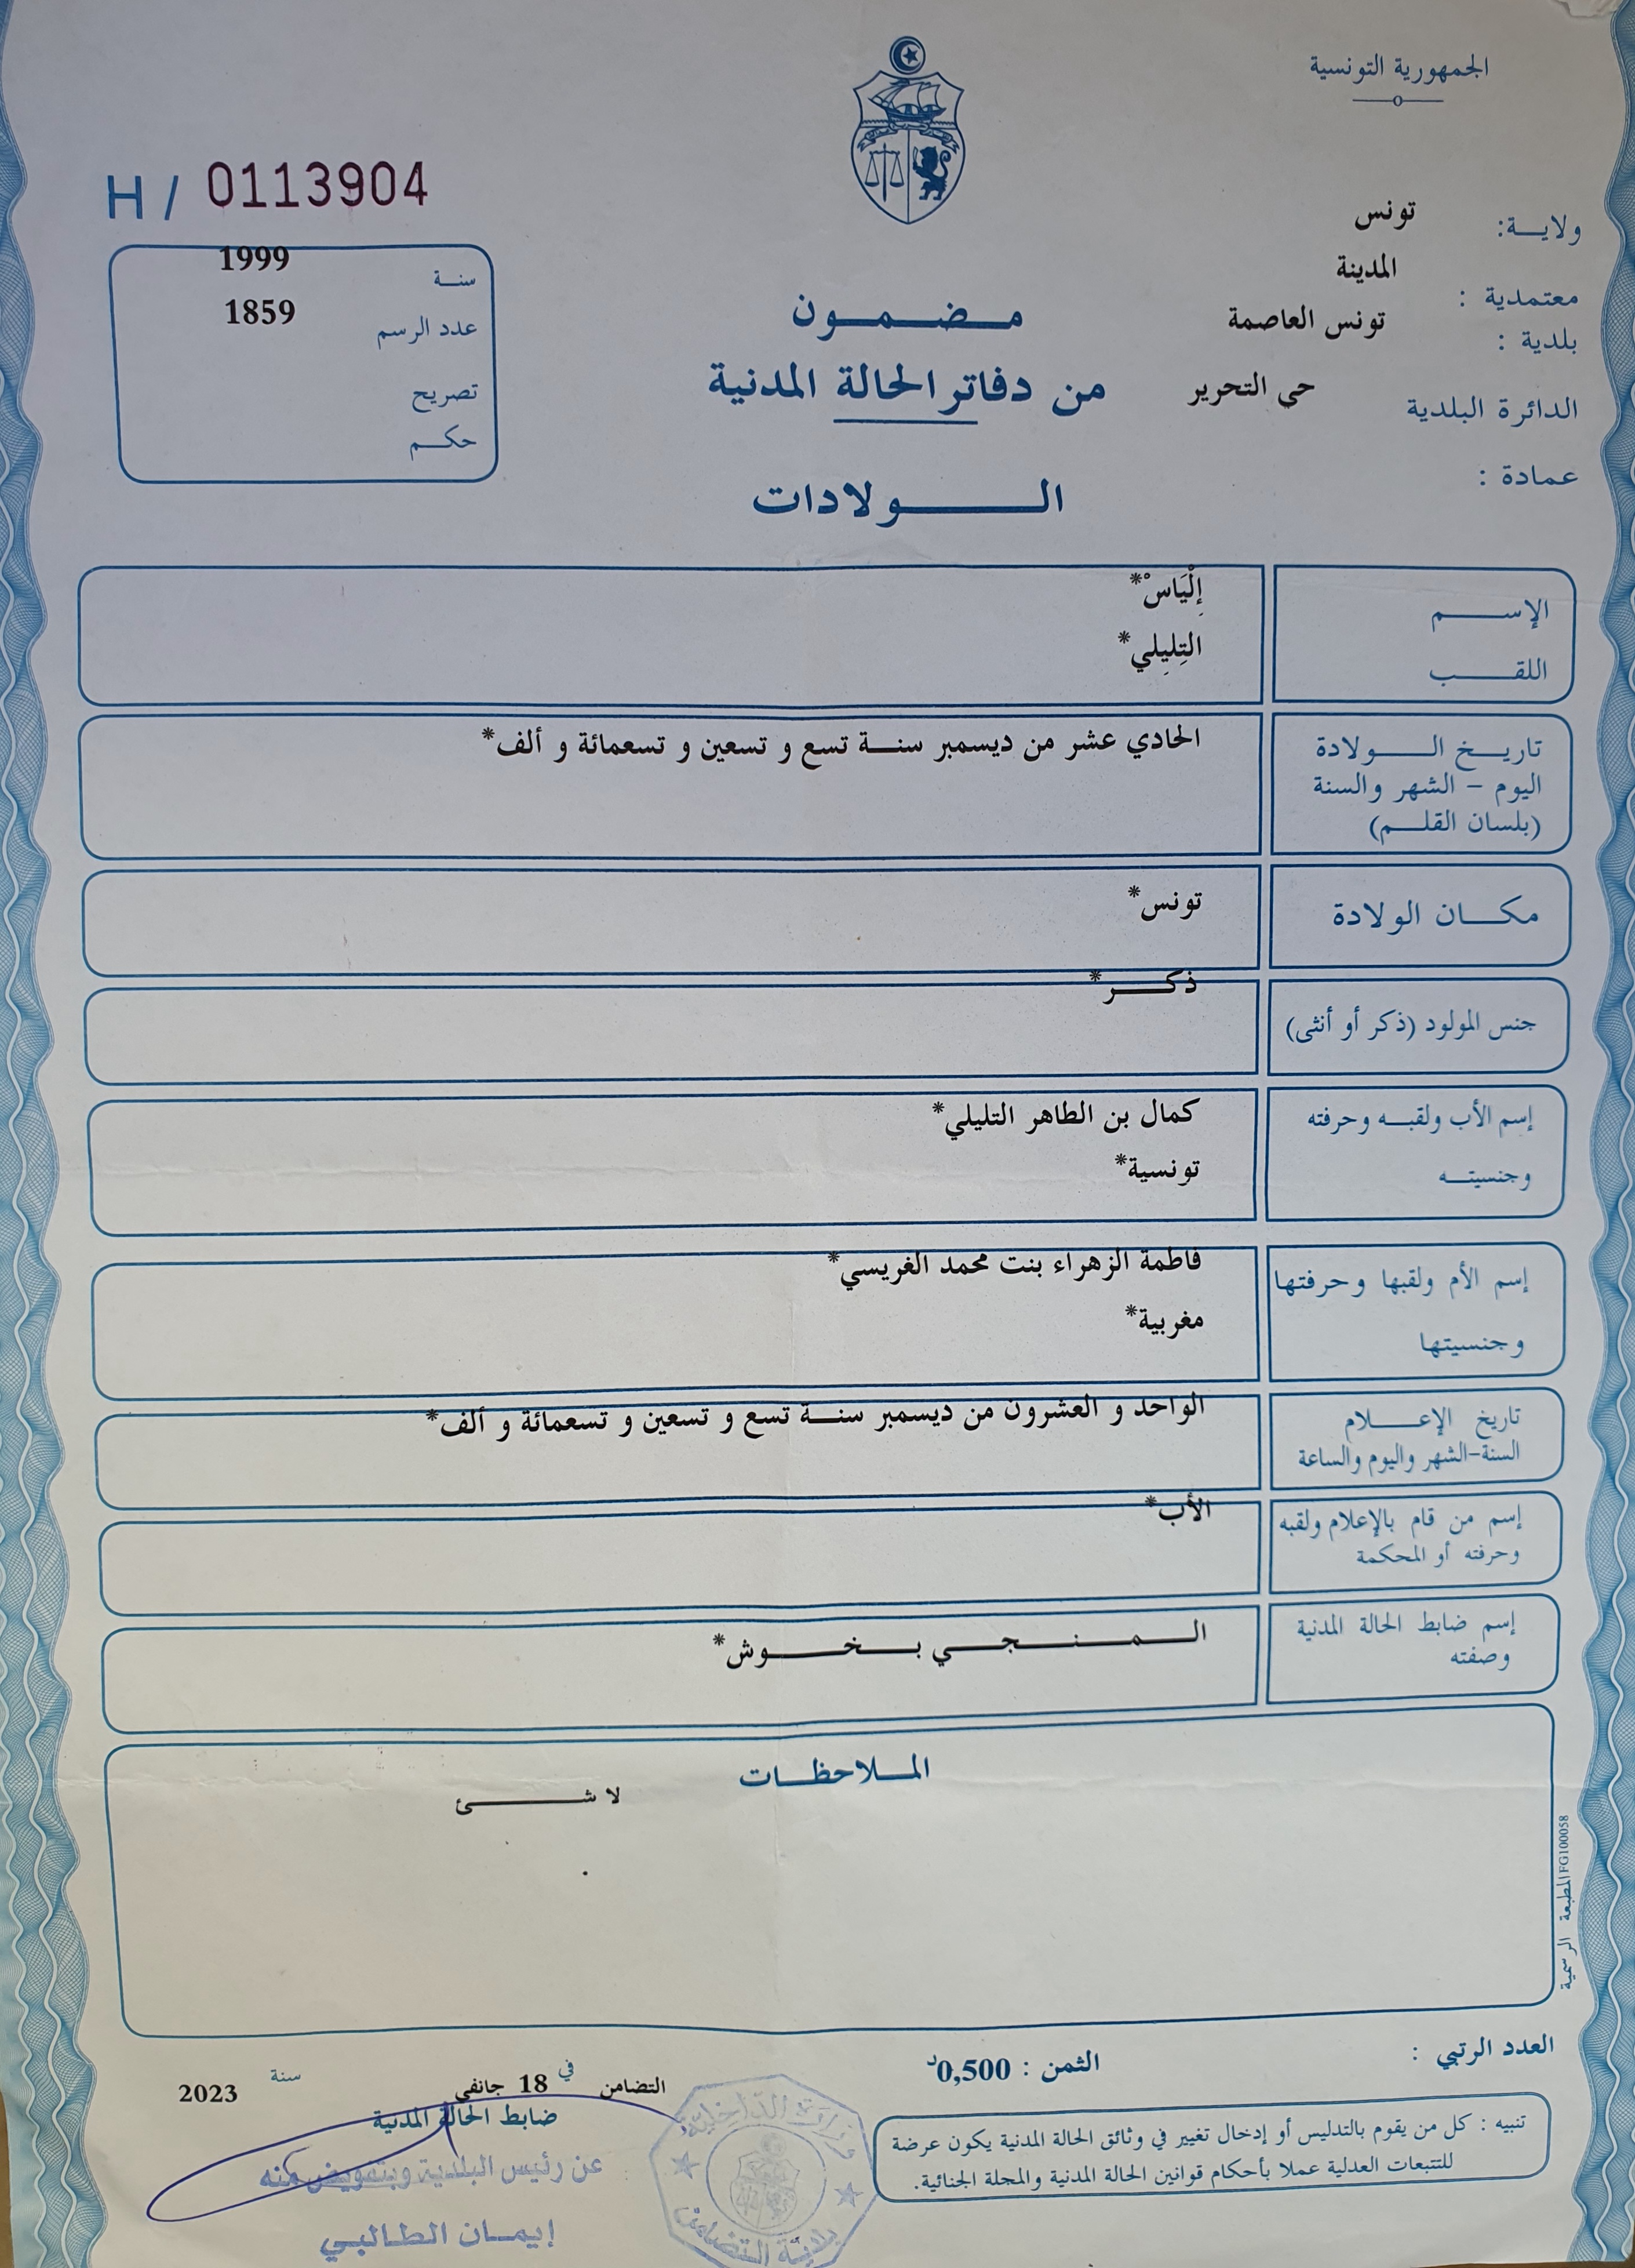 الجمهورية التونسية
H / 0113904
ولايـــة: تونس
معتمدية : المدينة
بلدية : تونس العاصمة
الدائرة البلدية حي التحرير
عمادة :
سنـــة 1999
عدد الرسم 1859
تصريح
حكـــم
مـــضـــمـــون
من دفاتر الحالة المدنية
الـــــولادات
الإســـــم إِلْيَاسْ*
اللقـــــب التِلِيلِي*
تاريـــخ الـــــولادة الحادي عشر من ديسمبر سنـــة تسع و تسعين و تسعمائة و ألف*
اليوم - الشهر والسنة
(بلسان القلـــم)
مكـــان الولادة تونس*
جنس المولود (ذكر أو أنثى) ذكـــر*
إسم الأب ولقبـــه وحرفته كمال بن الطاهر التليلي*
وجنسيتـــه تونسية*
إسم الأم ولقبها وحرفتها فاطمة الزهراء بنت محمد الغريسي*
وجنسيتها مغربية*
تاريخ الإعـــــلام الواحد و العشرون من ديسمبر سنـــة تسع و تسعين و تسعمائة و ألف*
السنة-الشهر واليوم والساعة
إسم من قام بالإعلام ولقبه الأب*
وحرفته أو المحكمة
إسم ضابط الحالة المدنية الـــمـــنـــجـــي بـــخـــوش*
وصفته
المـــلاحظـــات
لا شـــــئ
المطبعة الرسمية FG100058
العدد الرتبي :
الثمن : 0,500د
التضامن في 18 جانفي سنة 2023
ضابط الحالة المدنية
عن رئيس البلدية وبتفويض منه
إيمـــان الطـالبـي
وزارة الداخلية
بلدية التضامن
تنبيه : كل من يقوم بالتدليس أو إدخال تغيير في وثائق الحالة المدنية يكون عرضة
للتتبعات العدلية عملا بأحكام قوانين الحالة المدنية والمجلة الجنائية.